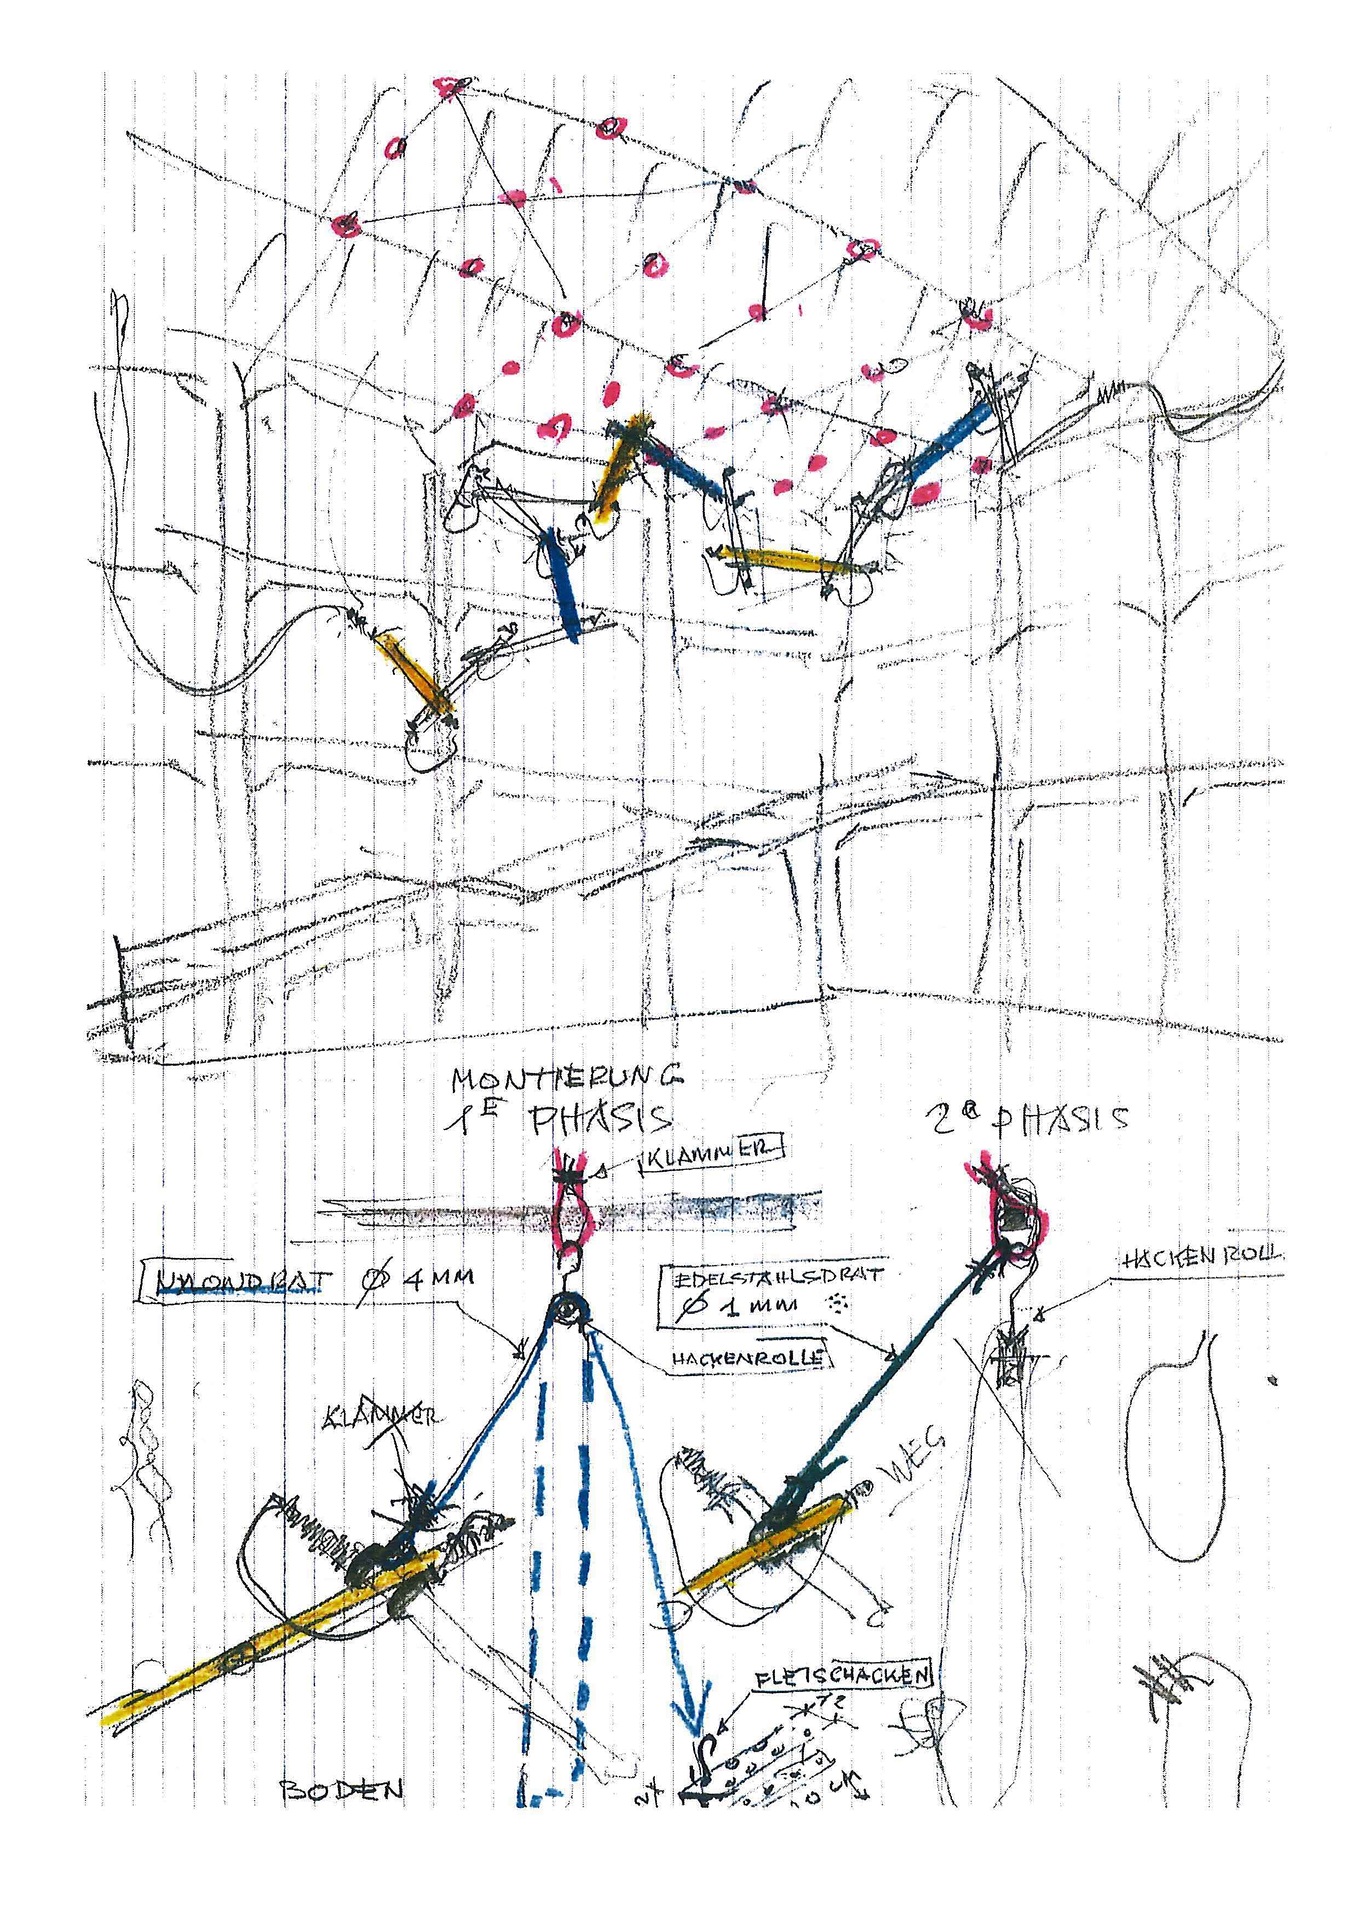 MONTIERUNG
1E PHASIS
2e PHASIS
KLAMMER
Ø 4 MM
EDELSTAHLSDRAT
Ø 1 MM
HACKENROLL
HACKENROLLE
KLAMMER
WEG
FLEISCHACKEN
BODEN